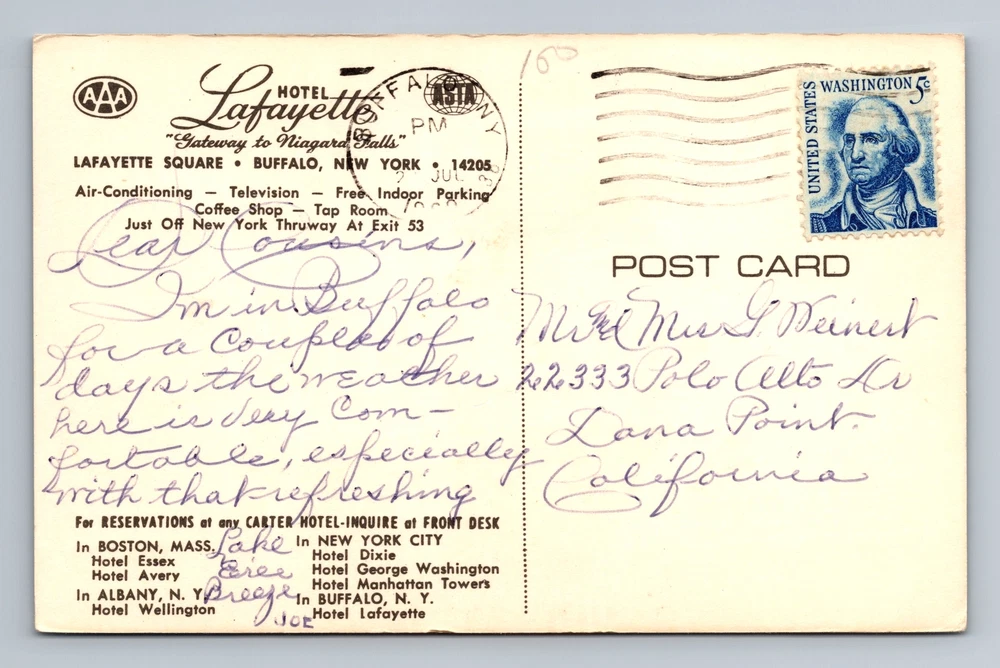 AAA
HOTEL
Lafayette
"Gateway to Niagara Falls"
ASTA
LAFAYETTE SQUARE • BUFFALO, NEW YORK • 14205
Air-Conditioning — Television — Free Indoor Parking
Coffee Shop — Tap Room
Just Off New York Thruway At Exit 53
BUFFALO NY
PM
2 JUL
100
UNITED STATES
WASHINGTON 5c
POST CARD
Dear Cousins,
I'm in Buffalo
for a couple of
days the weather
here is very com-
fortable, especially
with that refreshing
Lake
Eree
Breeze
JOE
For RESERVATIONS at any CARTER HOTEL-INQUIRE at FRONT DESK
In BOSTON, MASS.
Hotel Essex
Hotel Avery
In ALBANY, N. Y.
Hotel Wellington
In NEW YORK CITY
Hotel Dixie
Hotel George Washington
Hotel Manhattan Towers
In BUFFALO, N. Y.
Hotel Lafayette
Mr &d Mrs G. Weinert
22333 Polo Alto Dr
Dana Point.
California